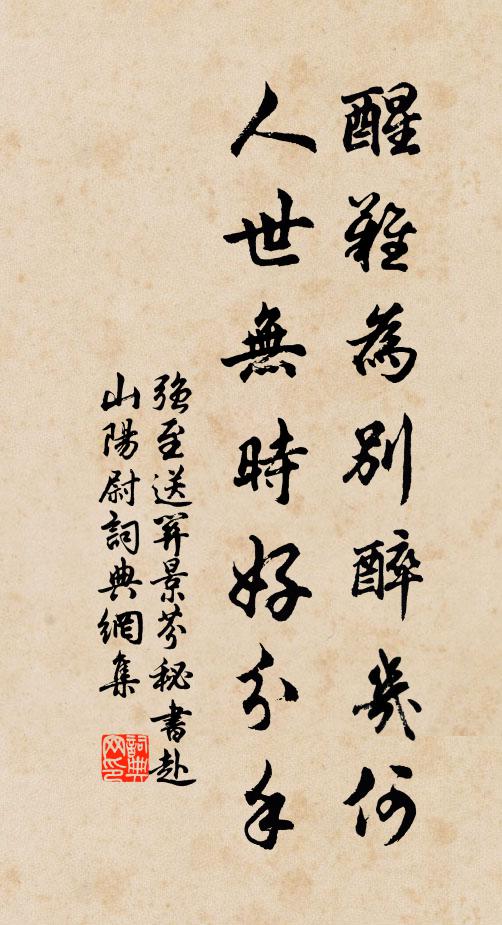 醒難為別醉幾何
人世無時好分手
強至送景芬秘書赴
山陽尉詞典網集
詞典
网印